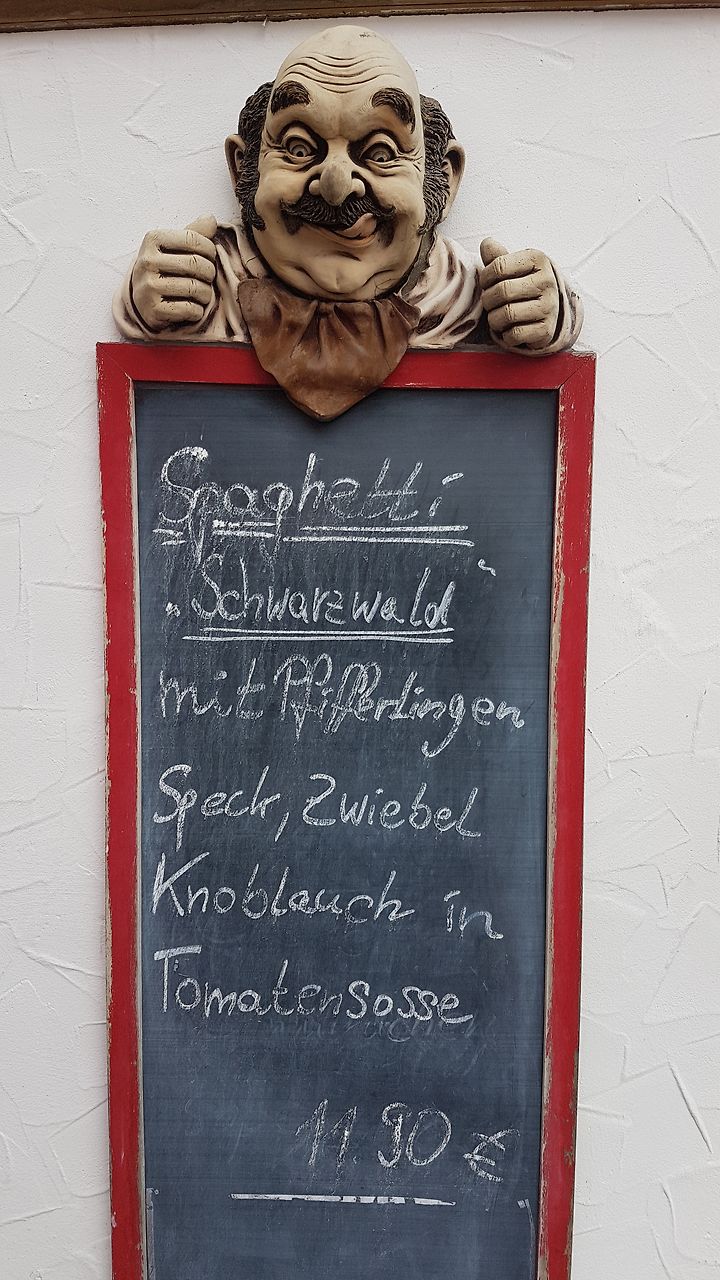 Spaghetti
„Schwarzwald“
mit Pfifferlingen
Speck, Zwiebel
Knoblauch in
Tomatensosse
11.90 €